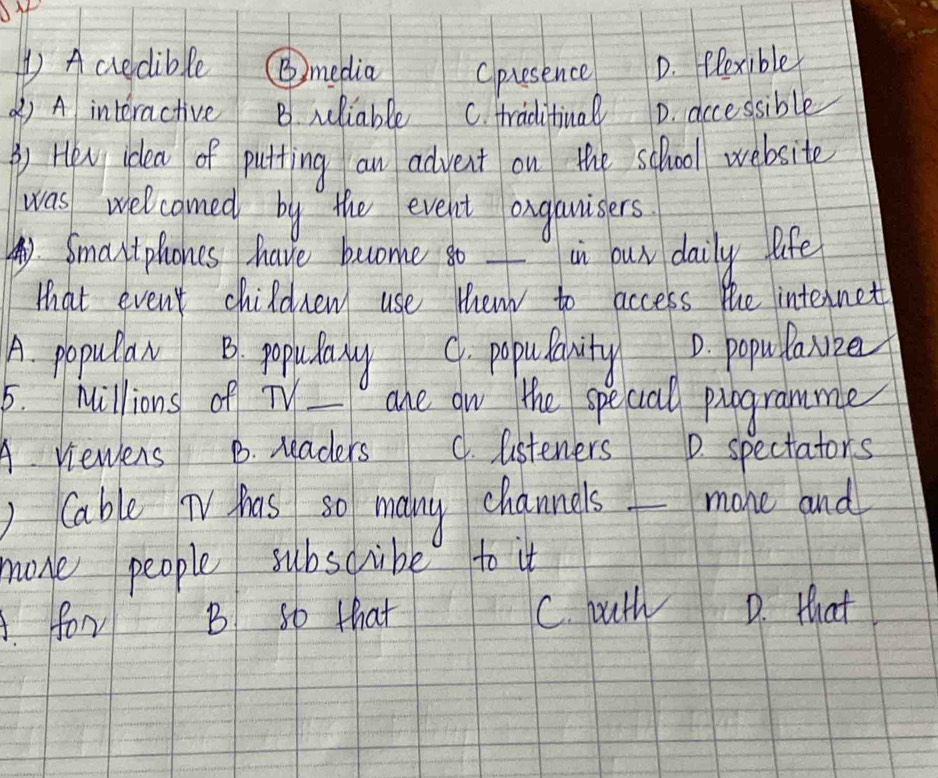 1) A credible B media C presence D. flexible
2) A interactive B. reliable C. traditinal D. accessible
3) Her idea of putting an advert on the school website
was welcomed by the event organisers.
4). Smartphones have become so __ in our daily life
that event children use them to access the internet
A. popular B. populary C. popularity D. popularize
5. Millions of TV __ are on the special programme
A. viewers B. readers C. listeners D. spectators
) Cable TV has so many channels __ more and
more people subscribe to it
A. for B. so that C. with D. that.